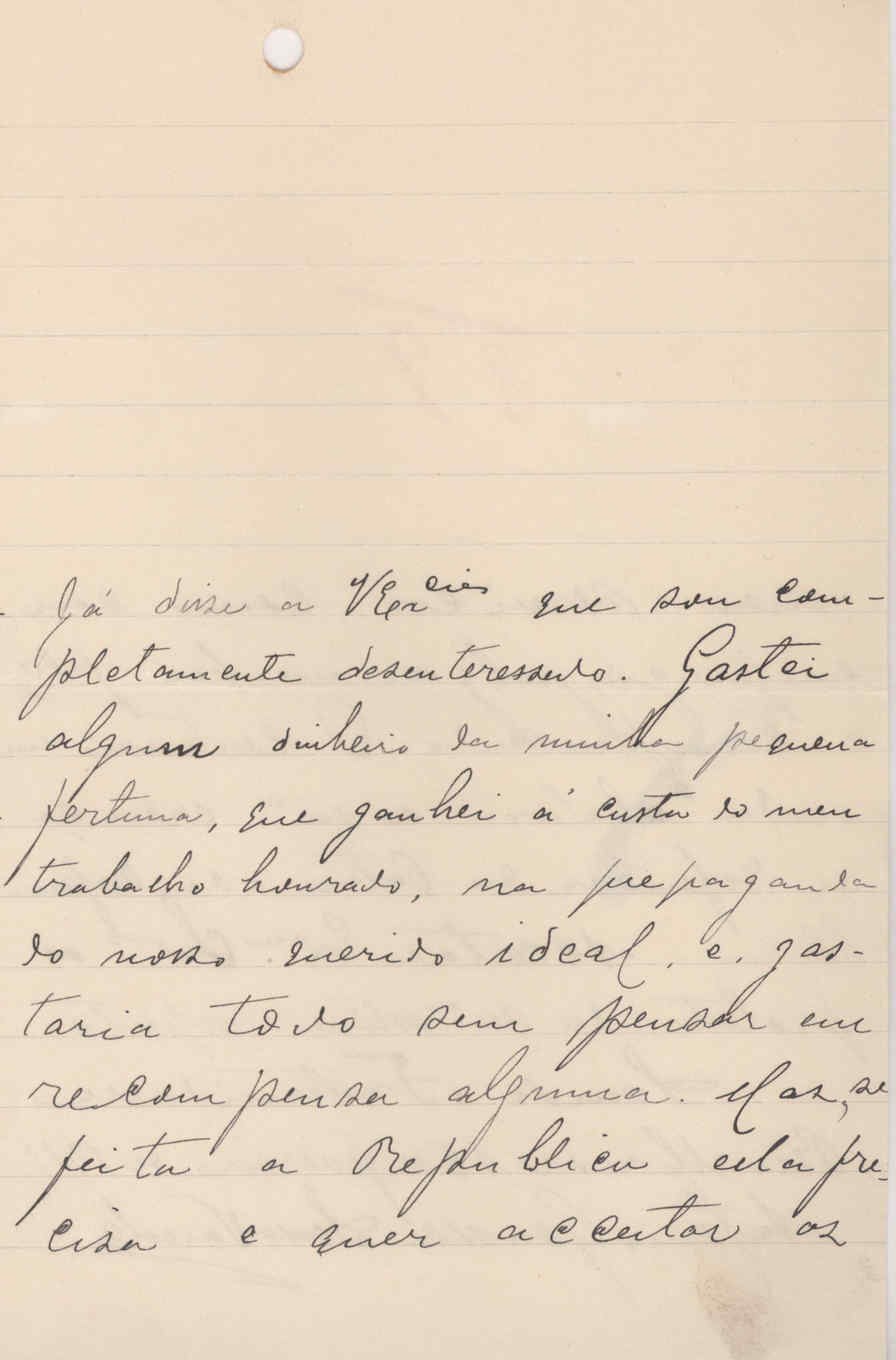 Já disse a VExcias que sou com-
pletamente desenteressado. Gastei
algum dinheiro da minha pequena
fortuna, que ganhei á custa do meu
trabalho honrado, na propaganda
do nosso querido ideal, e, gas-
taria todo sem pensar em
recompensa alguma. Mas, se
feita a Republica ella pre-
cisa e quer acceitar os